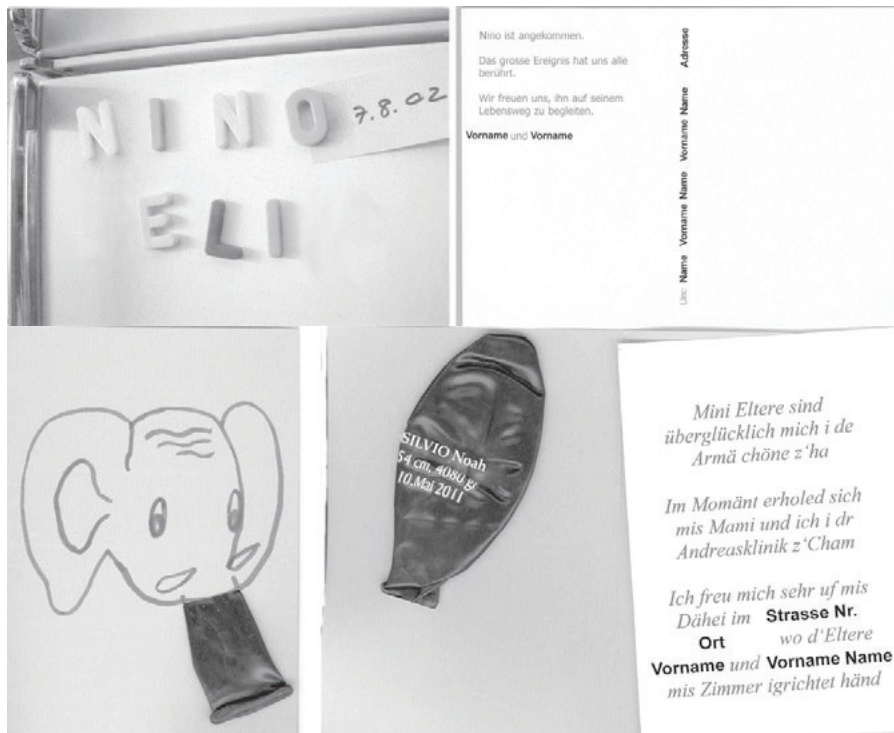 NINO
7.8.02
ELI
Nino ist angekommen.
Das grosse Ereignis hat uns alle
berührt.
Wir freuen uns, ihn auf seinem
Lebensweg zu begleiten.
Vorname und Vorname
Name Vorname Name Vorname Name Adresse
SILVIO Noah
54 cm, 4080 gr
10.Mai 2011
Mini Eltere sind
überglücklich mich i de
Armä chöne z'ha
Im Momänt erholed sich
mis Mami und ich i dr
Andreasklinik z'Cham
Ich freu mich sehr uf mis
Dähei im Strasse Nr.
Ort wo d'Eltere
Vorname und Vorname Name
mis Zimmer igrichtet händ